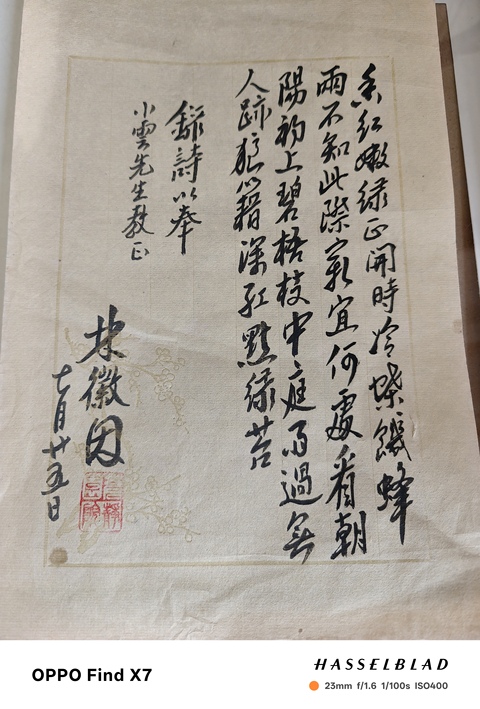 香紅嫩绿正開時冷蝶饑蜂
兩不知此際最宜何處看朝
陽初上碧梧枝中庭雨過無
人跡狼籍深紅點绿苔
錄詩以奉
小雲先生教正
林徽因
七月廿五日
OPPO Find X7
HASSELBLAD
23mm f/1.6 1/100s ISO400